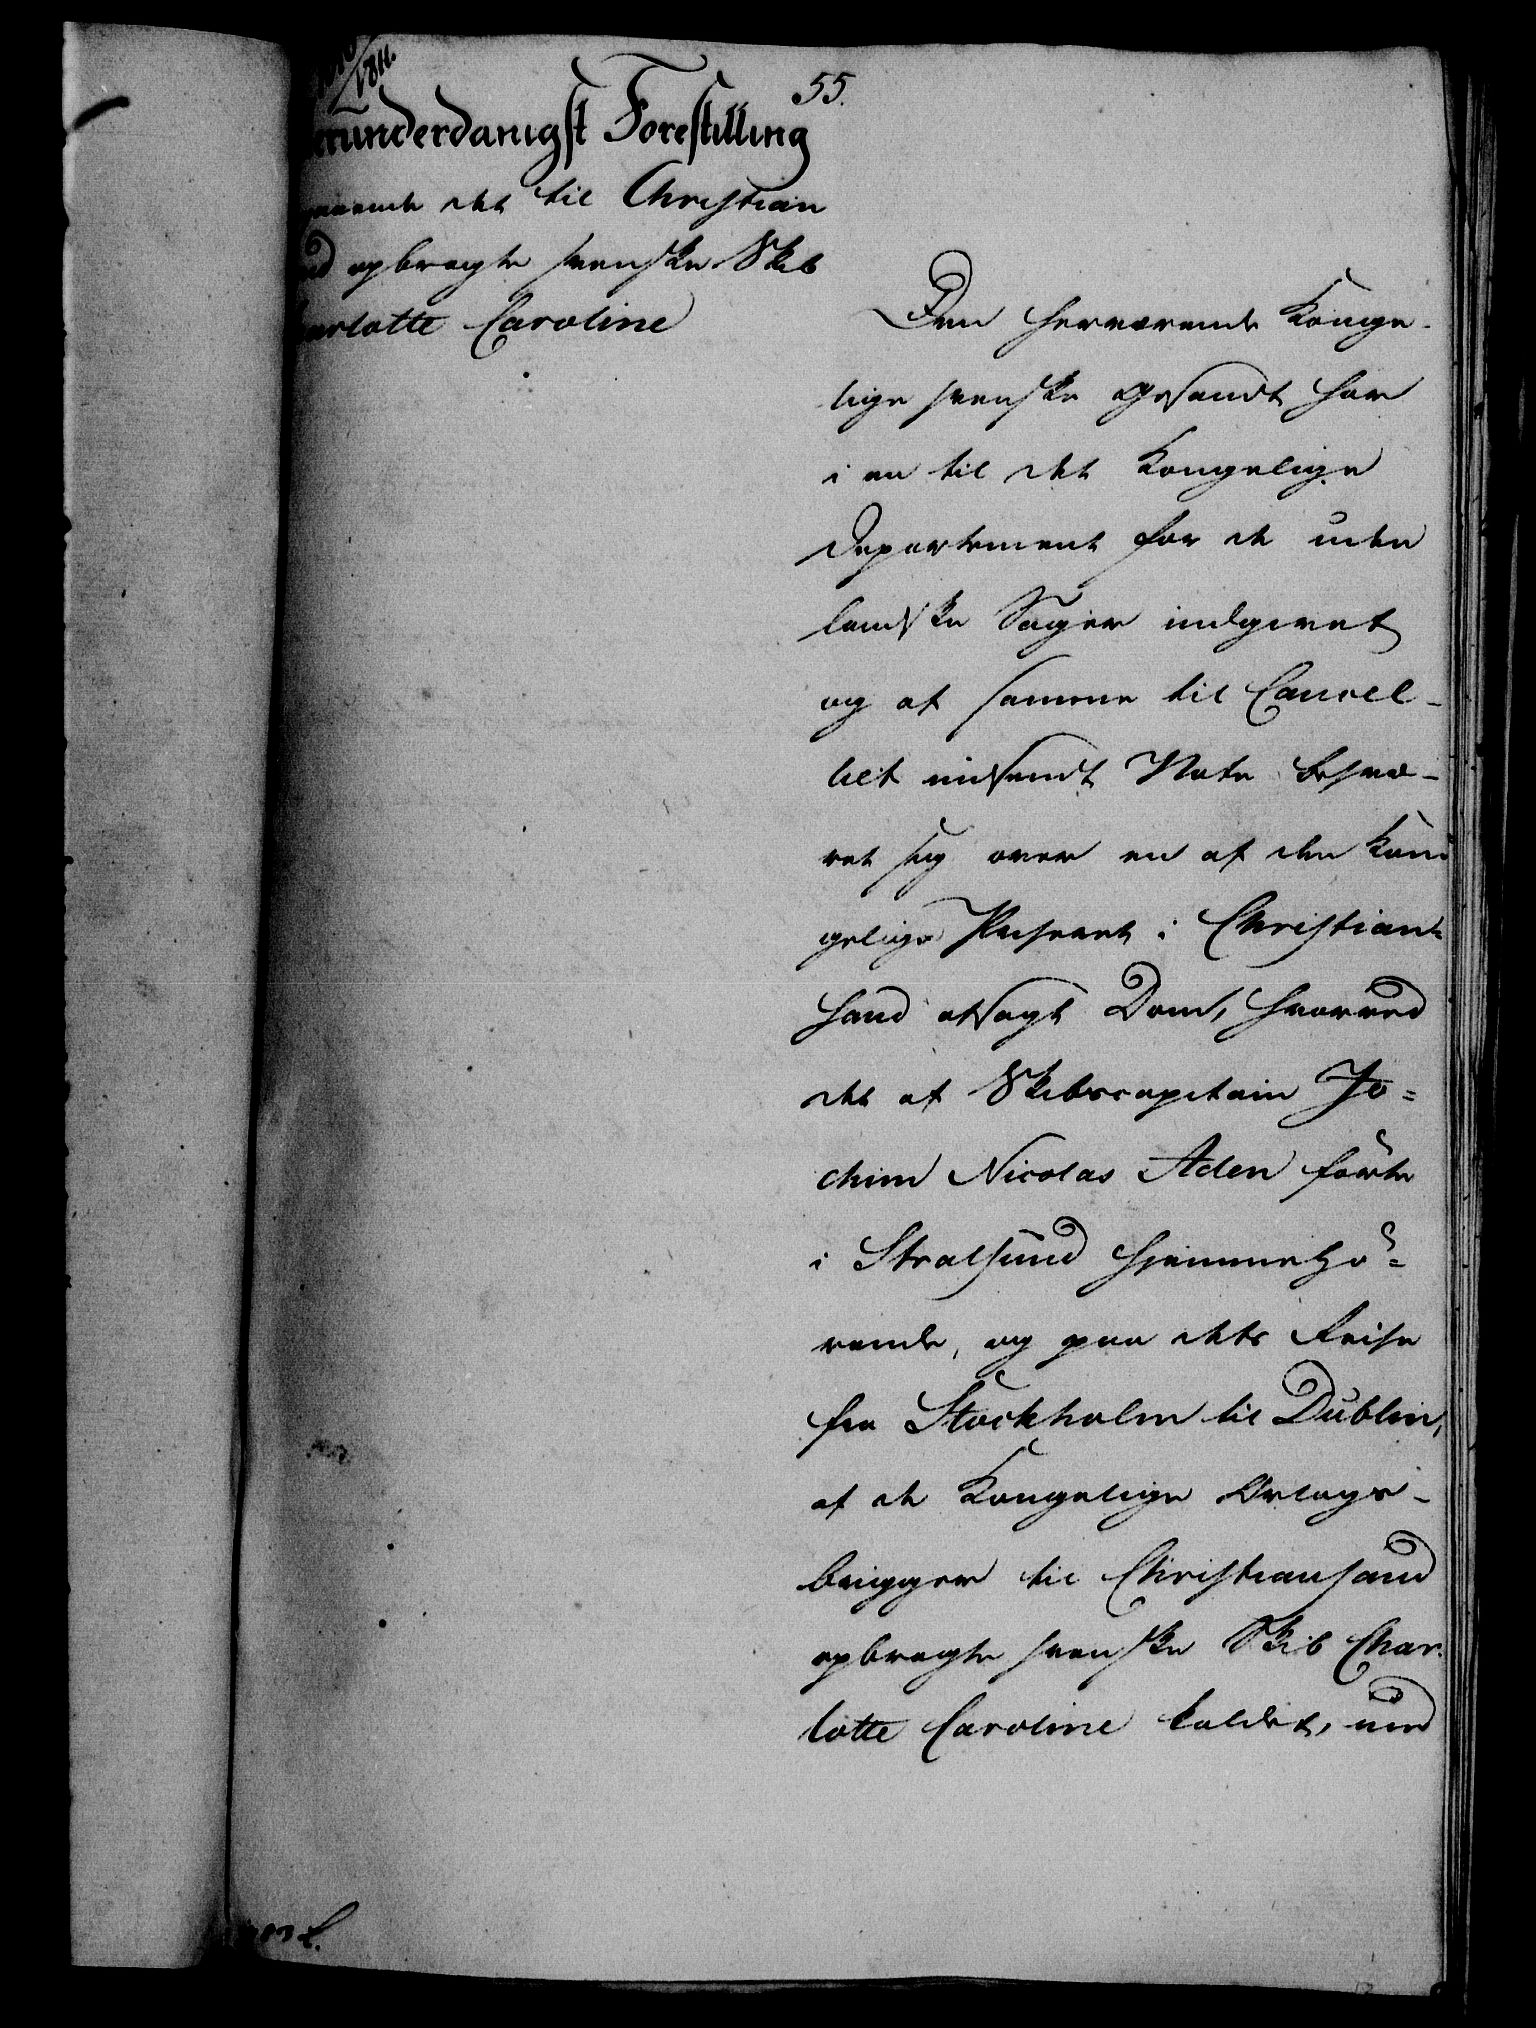 1811.
55.
erunderdanigst Forestilling
det til Christian
opbragte svenske Skib
arlotte Caroline
Den herværende Konge-
lige svenske Gesandt har
i en til det Kongelige
Departement for de uden
landske Sager indgivet
og af samme til Cancel-
liet indsendt Note besvæ-
ret sig over en af den Kon
gelige Priseret i Christian-
sand afsagt Dom, hvorved
det af Skibscapitain Jo-
chim Nicolas Aden førte
i Stralsund hjemmehø-
rende, og paa dets Reise
fra Stockholm til Dublin,
af de Kongelige Orlogs-
brigger til Christiansand
opbragte svenske Skib Char-
lotte Caroline kaldet, und